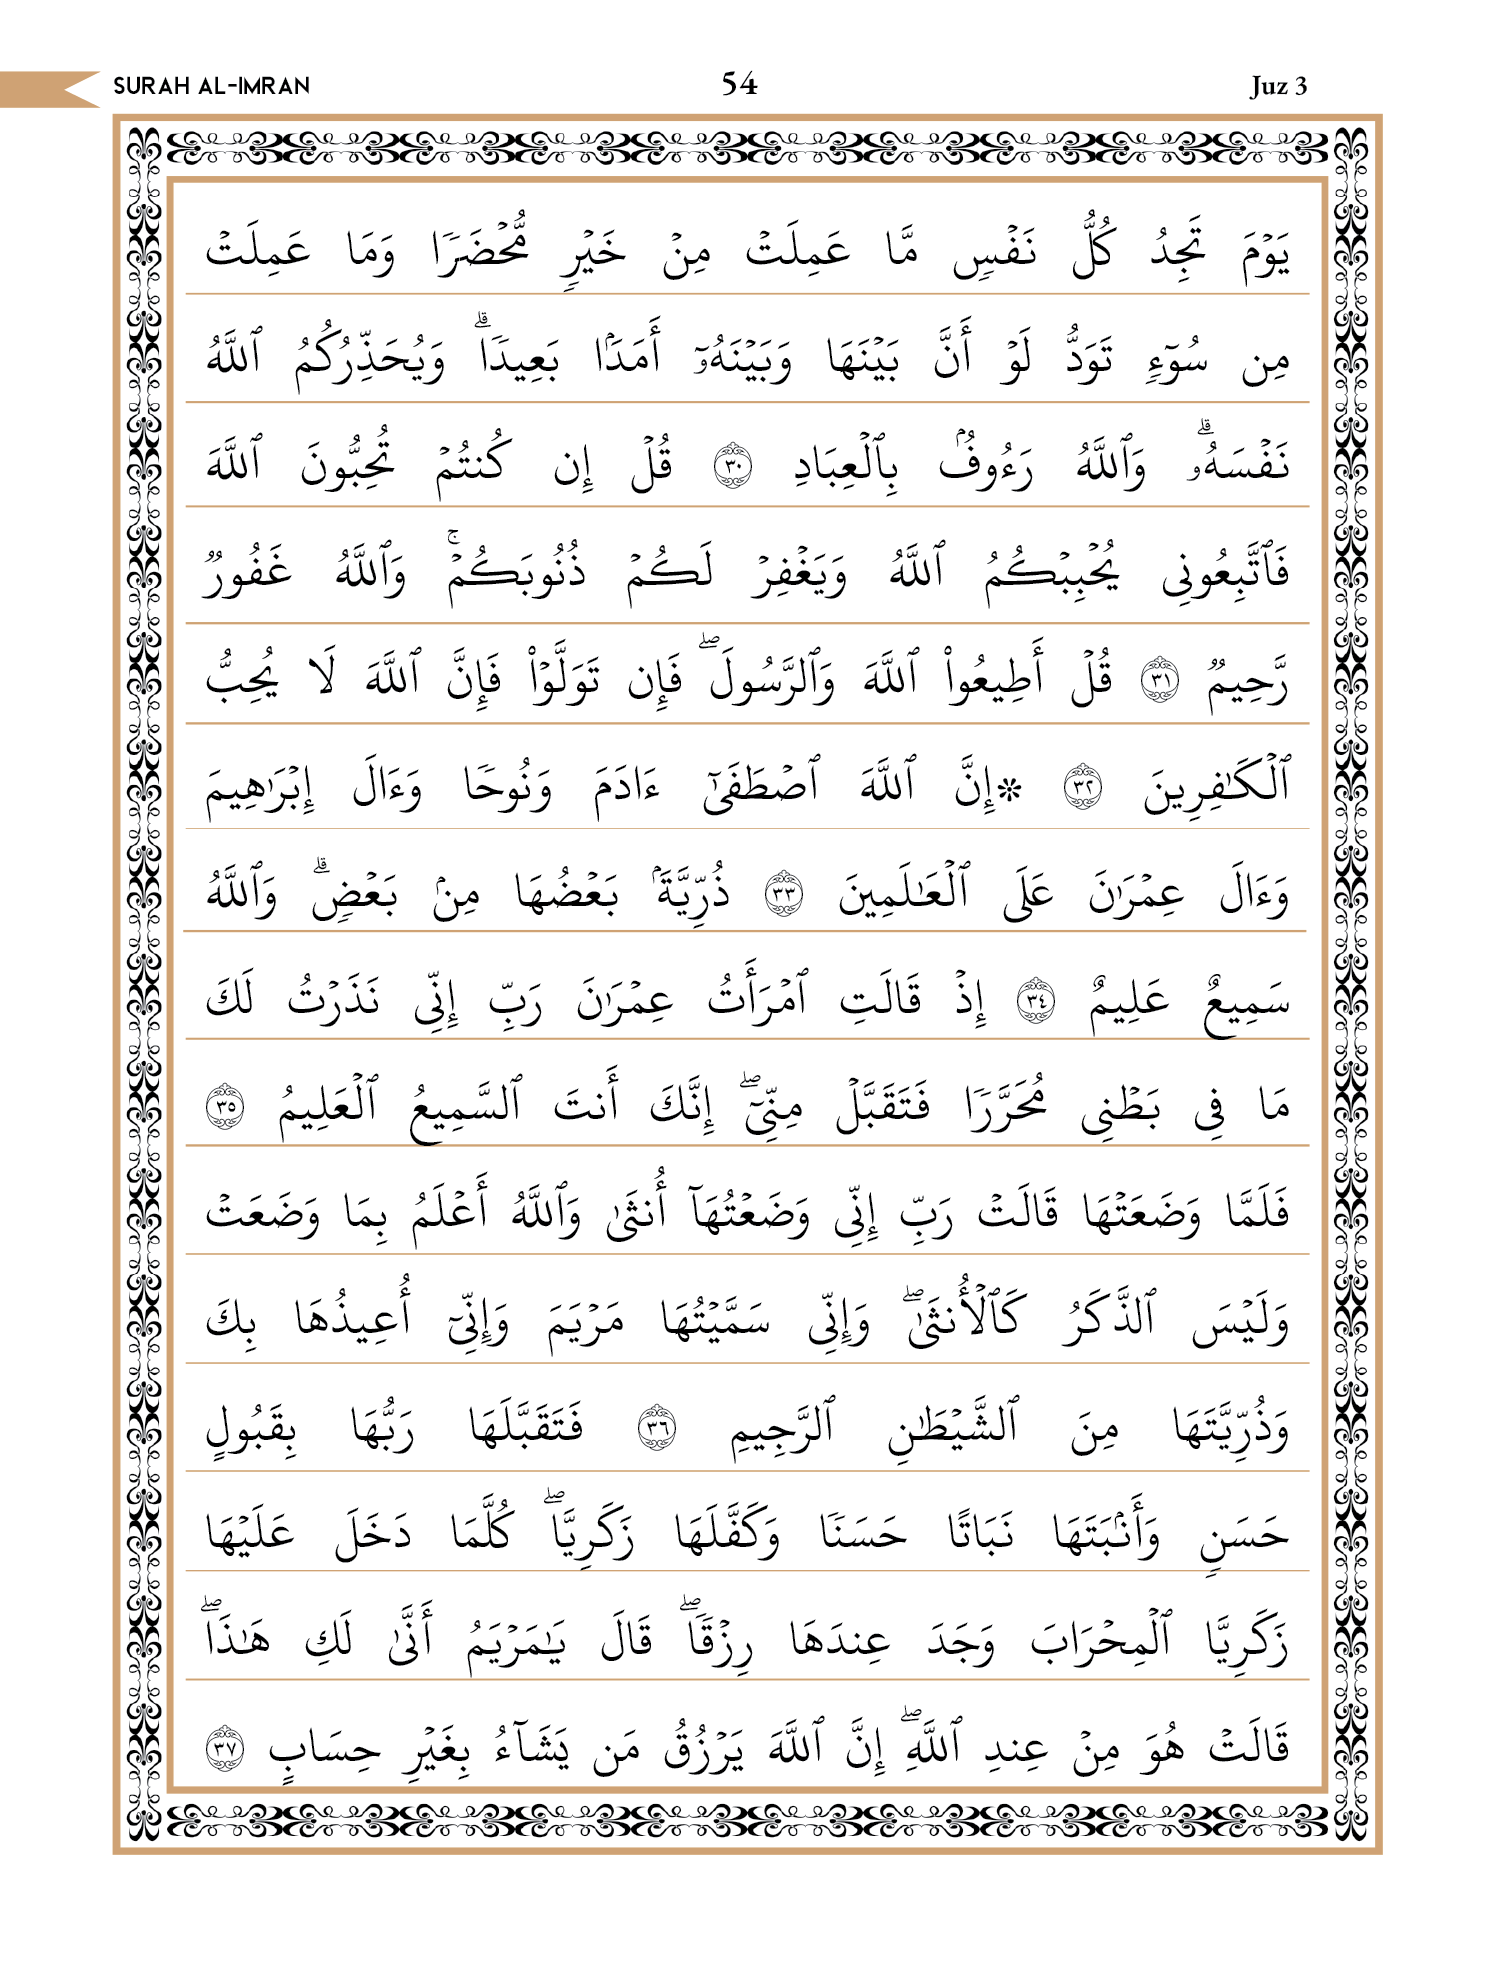 SURAH AL-IMRAN 54 Juz 3
يَوۡمَ تَجِدُ كُلُّ نَفۡسٖ مَّا عَمِلَتۡ مِنۡ خَيۡرٖ مُّحۡضَرٗا وَمَا عَمِلَتۡ
مِن سُوٓءٖ تَوَدُّ لَوۡ أَنَّ بَيۡنَهَا وَبَيۡنَهُۥٓ أَمَدَۢا بَعِيدٗاۗ وَيُحَذِّرُكُمُ ٱللَّهُ
نَفۡسَهُۥۗ وَٱللَّهُ رَءُوفُۢ بِٱلۡعِبَادِ ٣٠ قُلۡ إِن كُنتُمۡ تُحِبُّونَ ٱللَّهَ
فَٱتَّبِعُونِي يُحۡبِبۡكُمُ ٱللَّهُ وَيَغۡفِرۡ لَكُمۡ ذُنُوبَكُمۡۚ وَٱللَّهُ غَفُورٞ
رَّحِيمٞ ٣١ قُلۡ أَطِيعُواْ ٱللَّهَ وَٱلرَّسُولَۖ فَإِن تَوَلَّوۡاْ فَإِنَّ ٱللَّهَ لَا يُحِبُّ
ٱلۡكَٰفِرِينَ ٣٢ ۞إِنَّ ٱللَّهَ ٱصۡطَفَىٰٓ ءَادَمَ وَنُوحٗا وَءَالَ إِبۡرَٰهِيمَ
وَءَالَ عِمۡرَٰنَ عَلَى ٱلۡعَٰلَمِينَ ٣٣ ذُرِّيَّةَۢ بَعۡضُهَا مِنۢ بَعۡضٖۗ وَٱللَّهُ
سَمِيعٌ عَلِيمٌ ٣٤ إِذۡ قَالَتِ ٱمۡرَأَتُ عِمۡرَٰنَ رَبِّ إِنِّي نَذَرۡتُ لَكَ
مَا فِي بَطۡنِي مُحَرَّرٗا فَتَقَبَّلۡ مِنِّيٓۖ إِنَّكَ أَنتَ ٱلسَّمِيعُ ٱلۡعَلِيمُ ٣٥
فَلَمَّا وَضَعَتۡهَا قَالَتۡ رَبِّ إِنِّي وَضَعۡتُهَآ أُنثَىٰ وَٱللَّهُ أَعۡلَمُ بِمَا وَضَعَتۡ
وَلَيۡسَ ٱلذَّكَرُ كَٱلۡأُنثَىٰۖ وَإِنِّي سَمَّيۡتُهَا مَرۡيَمَ وَإِنِّيٓ أُعِيذُهَا بِكَ
وَذُرِّيَّتَهَا مِنَ ٱلشَّيۡطَٰنِ ٱلرَّجِيمِ ٣٦ فَتَقَبَّلَهَا رَبُّهَا بِقَبُولٍ
حَسَنٖ وَأَنۢبَتَهَا نَبَاتًا حَسَنٗا وَكَفَّلَهَا زَكَرِيَّاۖ كُلَّمَا دَخَلَ عَلَيۡهَا
زَكَرِيَّا ٱلۡمِحۡرَابَ وَجَدَ عِندَهَا رِزۡقٗاۖ قَالَ يَٰمَرۡيَمُ أَنَّىٰ لَكِ هَٰذَاۖ
قَالَتۡ هُوَ مِنۡ عِندِ ٱللَّهِۖ إِنَّ ٱللَّهَ يَرۡزُقُ مَن يَشَآءُ بِغَيۡرِ حِسَابٍ ٣٧